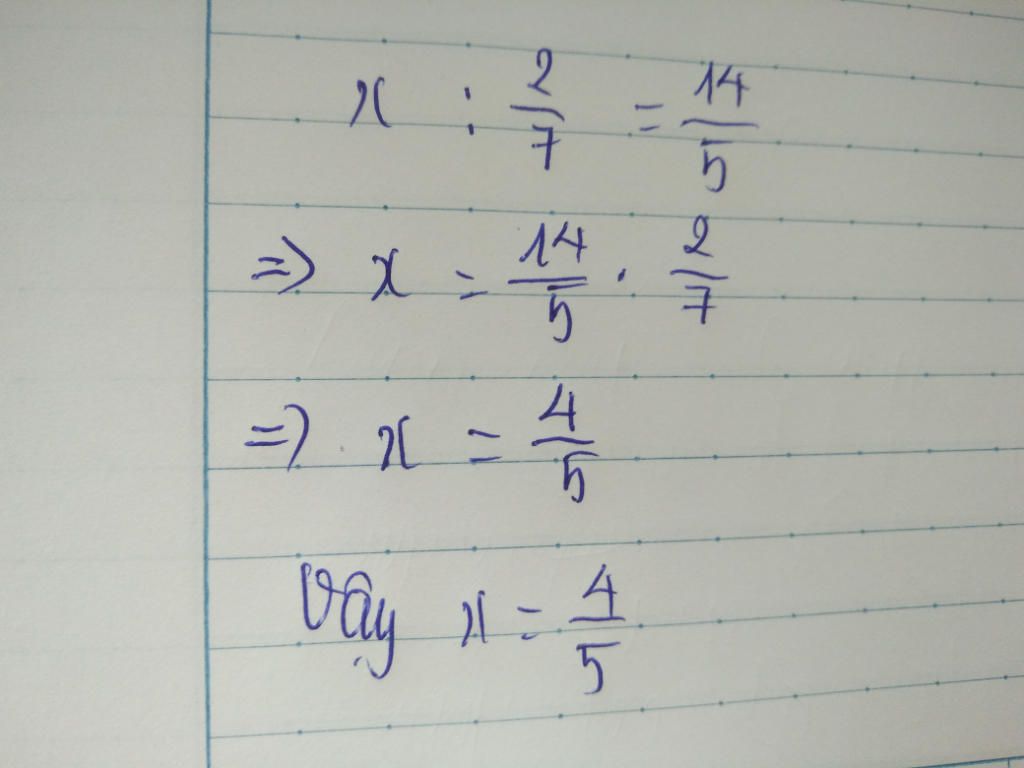 x : 2/7 = 14/5
=> x = 14/5 . 2/7
=> x = 4/5
Vậy x = 4/5